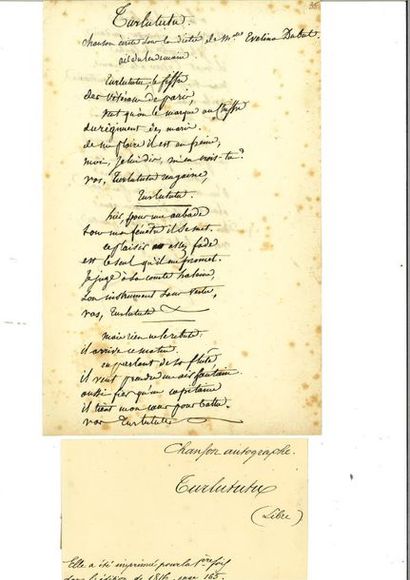 35
Turlututu.
chanson écrite sous la dictée de Mlle Evelina Dubut
air du lendemain
Turlututu, le fiffre
des Vétérans de paris,
veut qu'on le marque au chiffre
du régiment des maris.
de me plaire il est en peine,
moi, je lui dis, m'en crois-tu?
vas, Turlututu rengaine,
Turlututu.
hier, pour une aubade
sous ma fenêtre il se met.
ce plaisir assez fade
est le seul qu'il me promet.
Je juge à la courte haleine,
son instrument sans vertu,
vas, Turlututu
mais rien ne le rebute
il arrive ce matin.
en parlant de sa flûte
il veut prendre un air
aussi fier qu'un capitaine
il tient mon cœur pour battu.
vas Turlututu
Chanson autographe.
Turlututu
(Libre)
Elle a été imprimé pour la 1ère fois
dans l'édition de 1816. page 165.